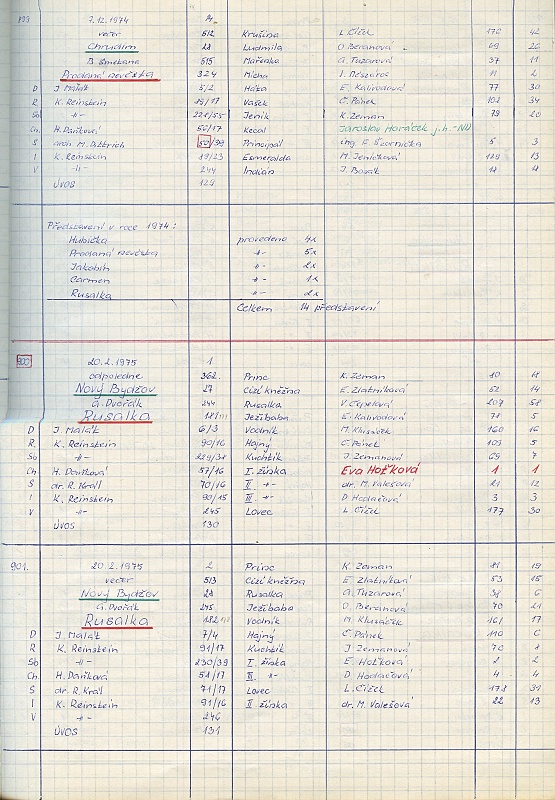 899 7.12.1974 14
večer 512 Krušina L. Čížek 176 42
Chrudim 28 Ludmila O. Beranová 69 26
B. Smetana 515 Mařenka A. Tuzarová 37 11
Prodaná nevěsta 324 Mícha
D J. Malát 5/2 Háta E. Kalivodová 77 30
R K. Reinstein Vašek Č. Pánek 102 34
So -"- 228/55 Jeník K. Zeman 79 20
Ch. H. Daňková 56/17 Kecal Jaroslav Horáček j.h. - ND
S arch. M. Dittrich 50/39 Principál 5 3
I K. Reinstein 19/23 Esmeralda M. Jeníčková 129 13
V -"- 244 Indián J. Bosák 12 4
ÚVOS 129
Představení v roce 1974:
Hubička provedena 4x
Prodaná nevěsta -"- 5x
Jakobín -"- 2x
Carmen -"- 1x
Rusalka -"- 2x
Celkem 14 představení
900 20.2.1975 1
odpoledne 362 Princ K. Zeman 80 18
Nový Bydžov 27 Cizí kněžna E. Zlatníková 52 14
A. Dvořák 244 Rusalka V. Čápelová 207 58
Rusalka 181/11 Ježibaba E. Kalivodová 78 5
D J. Malát 6/3 Vodník M. Klusáček 160 16
R K. Reinstein 90/16 Hajný Č. Pánek 109 5
So -"- 229/38 Kuchtík J. Zemanová 69 7
Ch H. Daňková 57/16 I. žínka Eva Hoťková 1 1
S dr. R. Král 70/16 II -"- dr. M. Valešová 21 12
I K. Reinstein 90/15 III -"- D. Hodačová 3 3
V 245 Lovec L. Čížek 177 30
ÚVOS 130
901. 20.2.1975 2 Princ K. Zeman 81 19
večer 513 Cizí kněžna E. Zlatníková 53 15
Nový Bydžov 28 Rusalka A. Tuzarová 38 6
A. Dvořák 245 Ježibaba O. Beranová 70 21
Rusalka 182 Vodník M. Klusáček 161 17
D J. Malát 7/4 Hajný Č. Pánek 110 6
R K. Reinstein 91/17 Kuchtík J. Zemanová 70 8
So -"- 230/39 I. žínka E. Hoťková 2 2
Ch. H. Daňková 58/17 III. -"- D. Hodačová 4 4
S dr. R. Král 71/17 Lovec L. Čížek 178 31
I K. Reinstein 91/16 II. žínka dr. M. Valešová 22 13
V -"- 246
ÚVOS 131